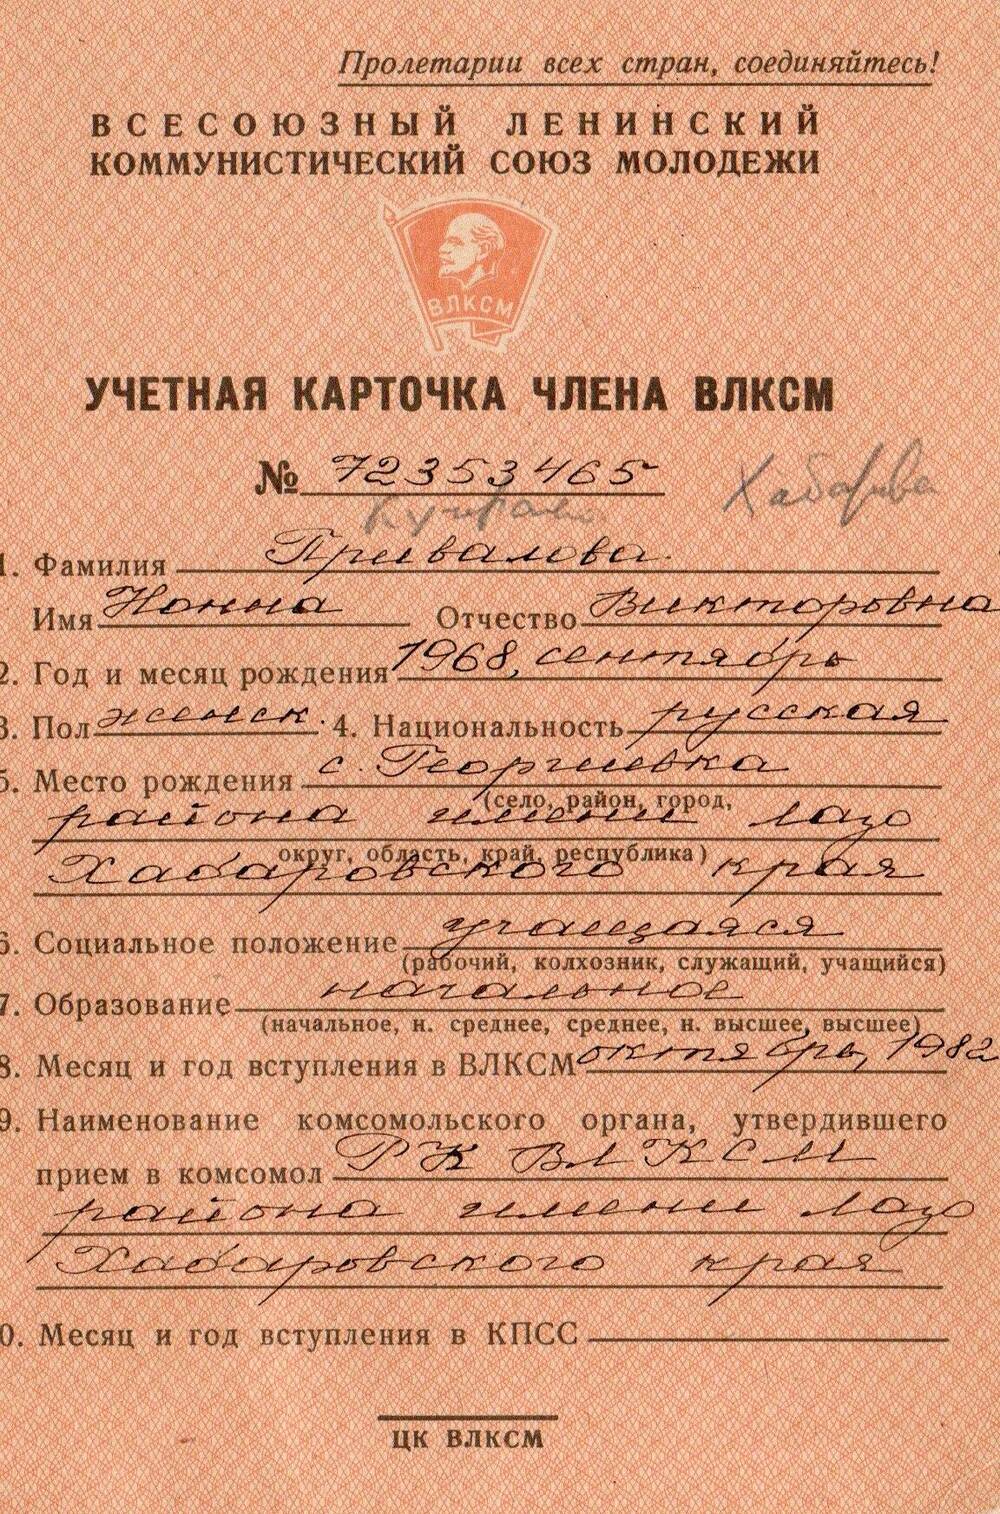 Пролетарии всех стран, соединяйтесь!
ВСЕСОЮЗНЫЙ ЛЕНИНСКИЙ
КОММУНИСТИЧЕСКИЙ СОЮЗ МОЛОДЕЖИ
ВЛКСМ
УЧЕТНАЯ КАРТОЧКА ЧЛЕНА ВЛКСМ
№ 72353465
1. Фамилия Привалова.
Имя Нонна Отчество Викторовна
2. Год и месяц рождения 1968, сентябрь
3. Пол женск. 4. Национальность русская
5. Место рождения с. Георгиевка
(село, район, город,
района имени Лазо
округ, область, край, республика)
Хабаровского края
6. Социальное положение учащаяся
(рабочий, колхозник, служащий, учащийся)
7. Образование начальное
(начальное, н. среднее, среднее, н. высшее, высшее)
8. Месяц и год вступления в ВЛКСМ октябрь, 1982
9. Наименование комсомольского органа, утвердившего
прием в комсомол РК ВЛКСМ
района имени Лазо
Хабаровского края
0. Месяц и год вступления в КПСС
ЦК ВЛКСМ